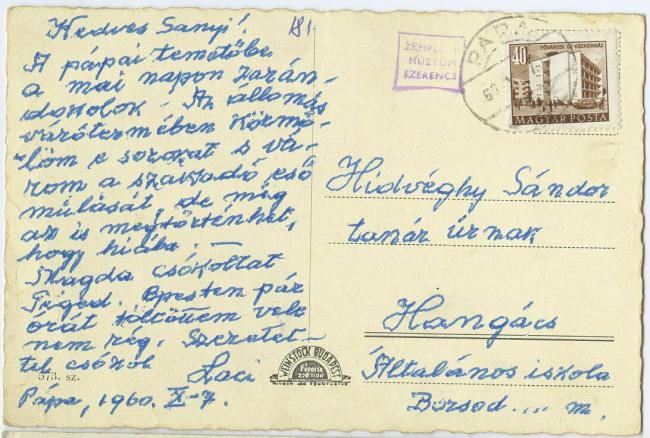 Kedves Sanyi!
181
A pápai temetőbe
a mai napon zarán-
dokolok. Az állomás
várótermében körmö-
löm e sorokat s vá-
rom a szakadó eső
múlását, de még
az is megtörténhet,
hogy hiába. —
Magda csókoltat
Téged. Bpesten pár
órát töltöttem vele
nem rég. Szeretet-
tel csókol
Laci
Pápa, 1960. X-7.
573. sz.
WEINSTOCK BUDAPEST
ZEMPLÉNI
MÚZEUM
SZERENCS
PÁPA
40f
FŐVÁROSI ÚJ KÓRHÁZ
MAGYAR POSTA
Hidvéghy Sándor
tanár úrnak
Hangács
Általános iskola
Borsod ... m.